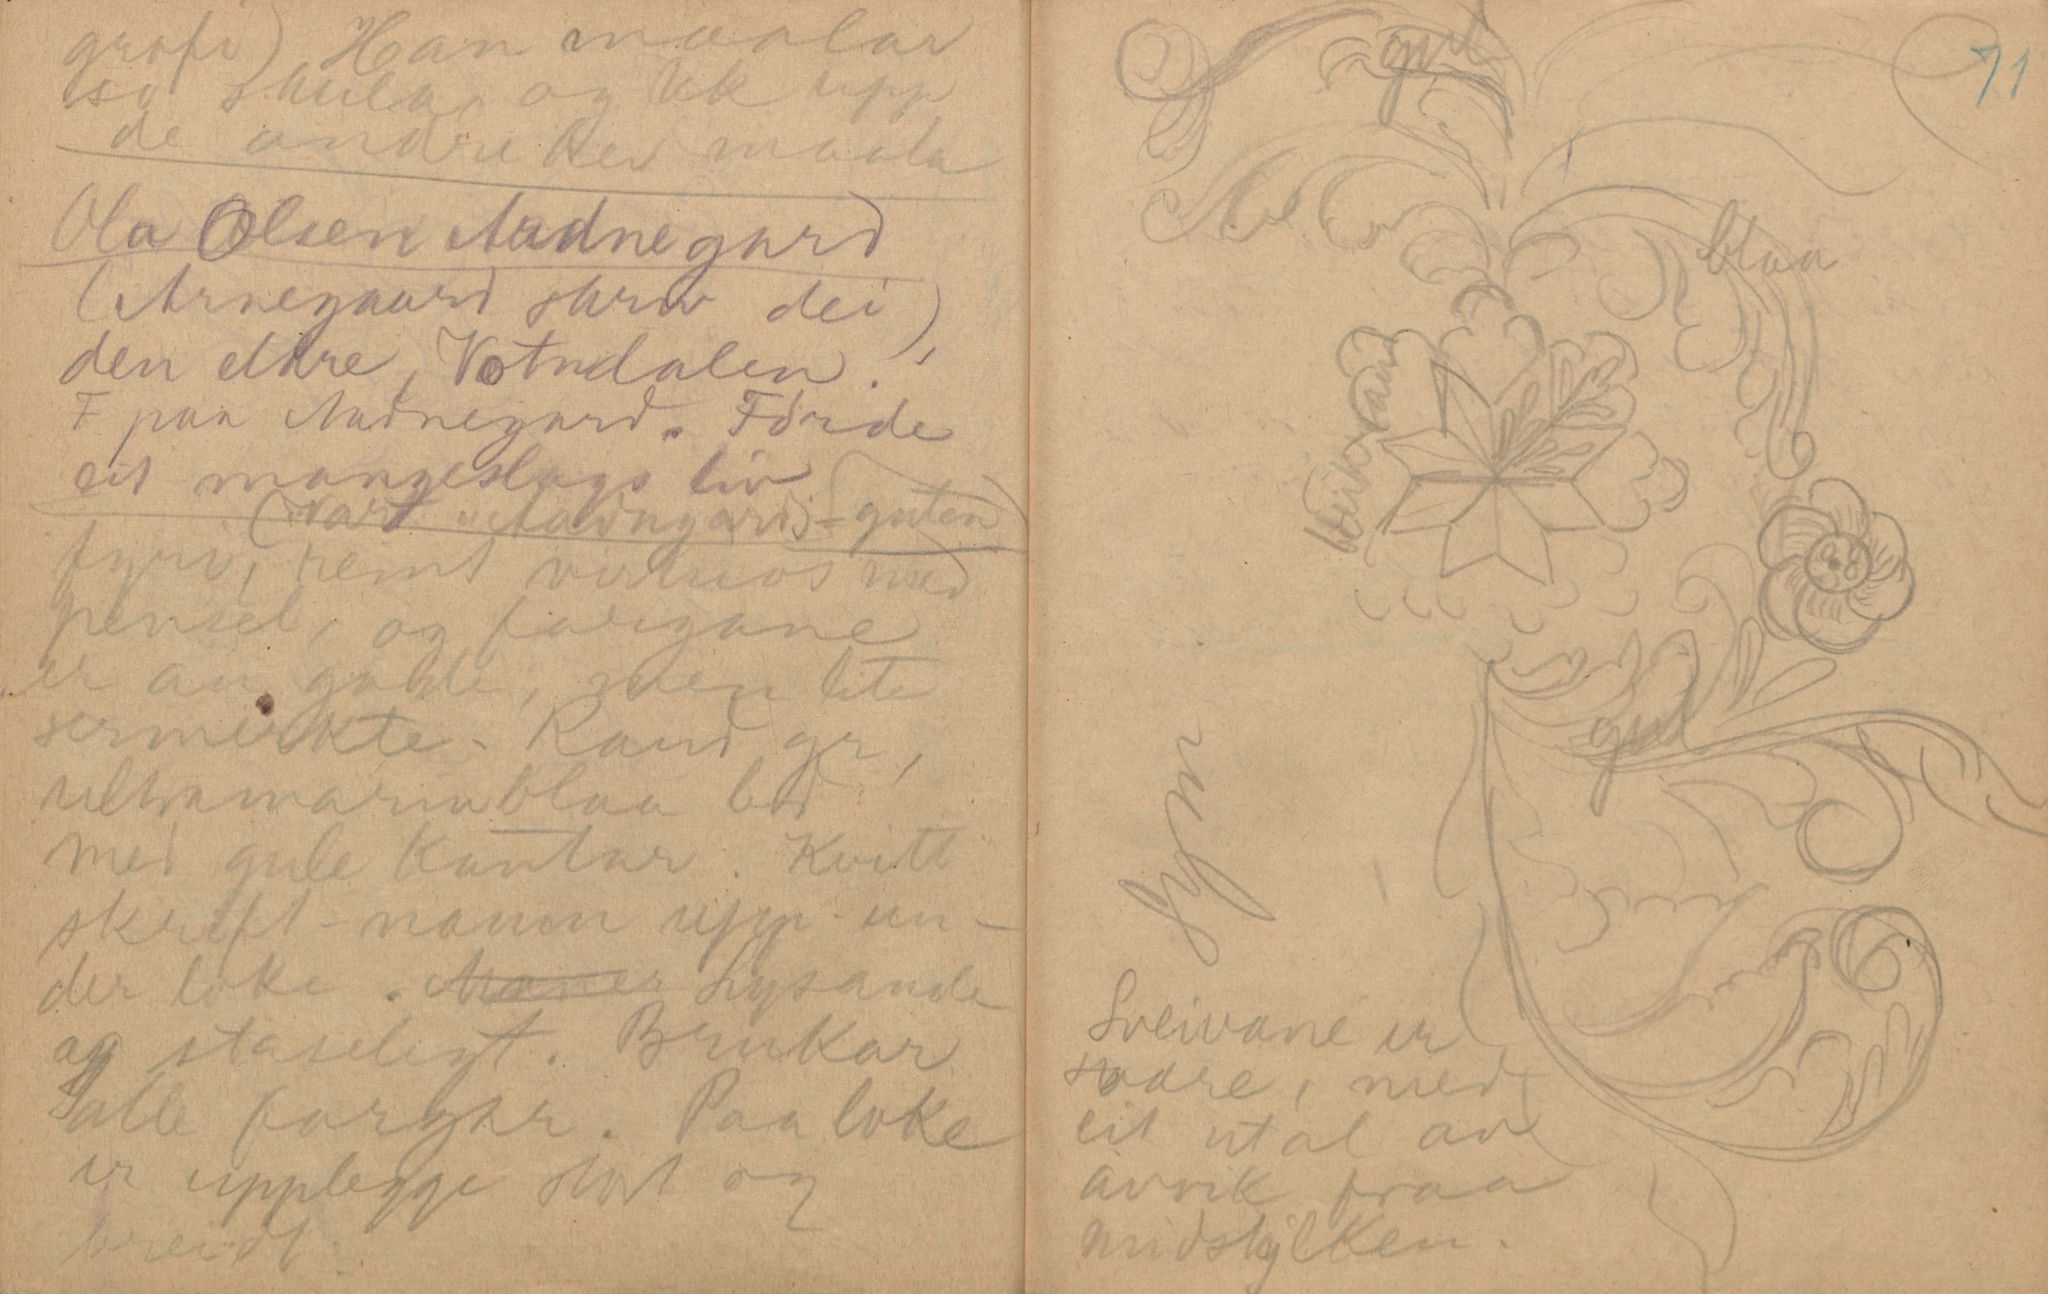 grafi) Han maalar
so skula, og fek upp
de andre ter maala
Ola Olsen Aadnegard
(Arnegaard skriv dei),
den eldre, Votndalen.
F paa Aadnegard. Förde
eit mangeslags liv
(var "Aadngards-guten)
fyrv, reint virtuos med
pensel, og fargane
er au gode, men lite
sermerkte. Raud gr,
ultramarinblaa bod
med gule Kantar. Kvitt
skrift-namn upp-un-
der loke. Lysande
og staselegt. Brukar
alle fargar. Paa loke
er upplegge stort og
breidt.
71
gul
blaa
kvik raud
gul
Lyn
Sveivane er
svare, med
eit utal av
avvik fraa
midstylken.